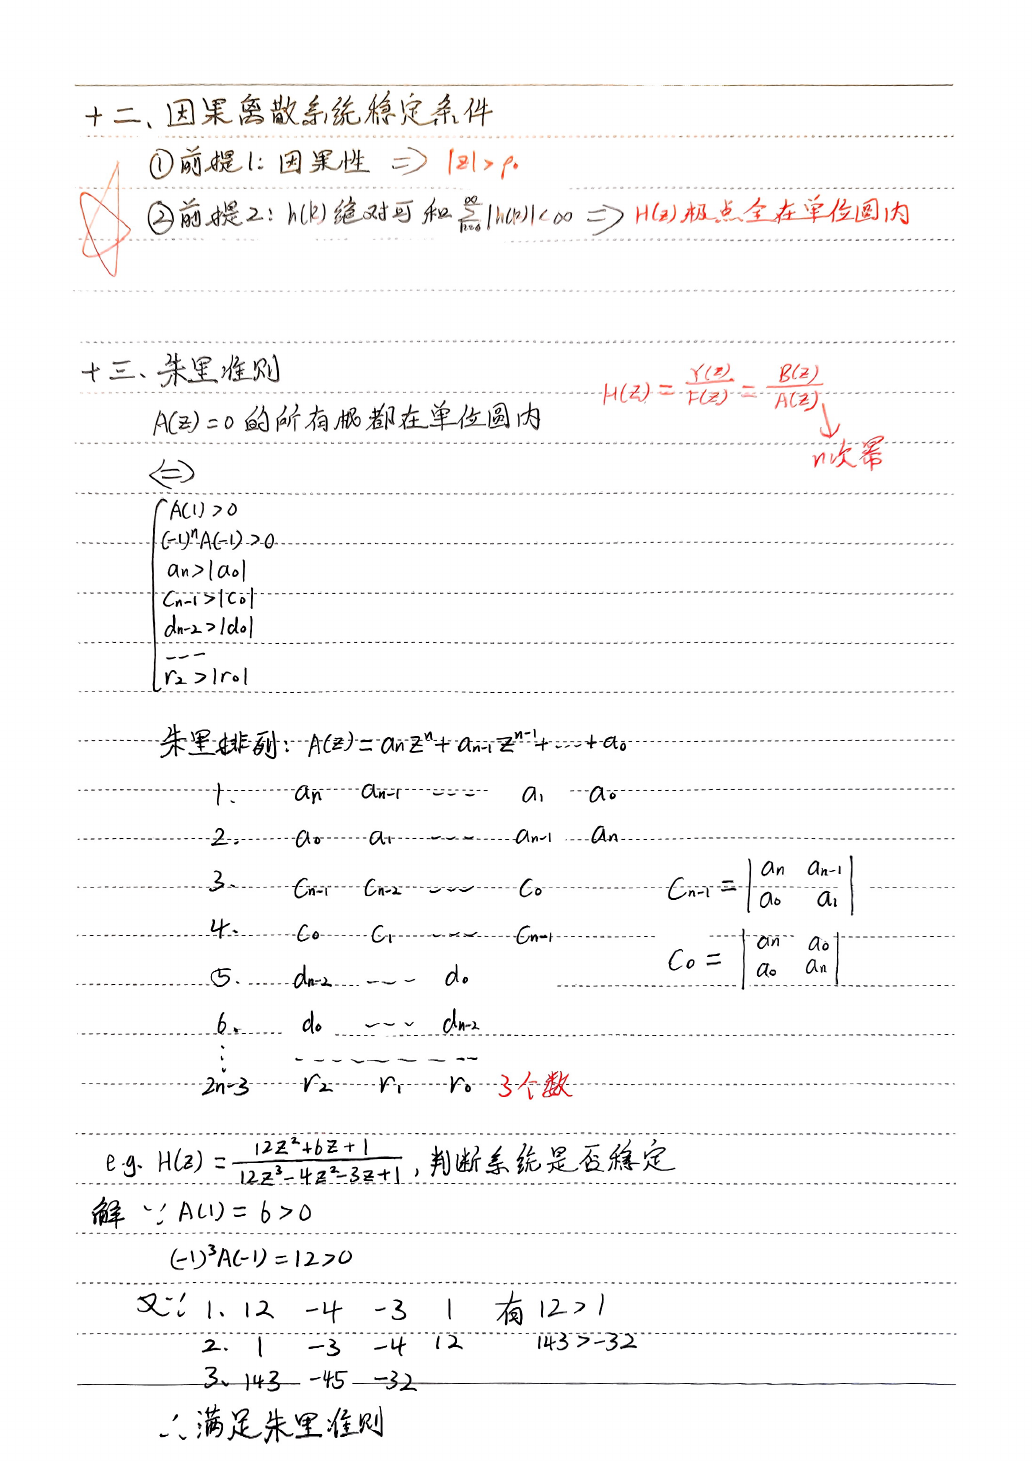 十二、因果离散系统稳定条件
①前提1: 因果性 => |z|>ρ₀
②前提2: h(k)绝对可和 ∑_{k=0}^{∞}|h(k)|<∞ => H(z)极点全在单位圆内
十三、朱里准则
H(z) = Y(z)/F(z) = B(z)/A(z)
A(z)=0的所有根都在单位圆内
n次幂
<=>
A(1)>0
(-1)ⁿA(-1)>0
aₙ>|a₀|
cₙ₋₁>|c₀|
dₙ₋₂>|d₀|
---
r₂>|r₀|
朱里排列: A(z)=aₙzⁿ+aₙ₋₁zⁿ⁻¹+---+a₀
1. aₙ aₙ₋₁ --- a₁ a₀
2. a₀ a₁ --- aₙ₋₁ aₙ
3. cₙ₋₁ cₙ₋₂ --- c₀ cₙ₋₁ = |aₙ aₙ₋₁; a₀ a₁|
4. c₀ c₁ --- cₙ₋₁ c₀ = |aₙ a₀; a₀ aₙ|
5. dₙ₋₂ --- d₀
6. d₀ --- dₙ₋₂
⋮ -------
2n-3 r₂ r₁ r₀ 3个数
e.g. H(z) = (12z²+6z+1)/(12z³-4z²-3z+1), 判断系统是否稳定
解 ∵ A(1) = 6>0
(-1)³A(-1)=12>0
又∵ 1. 12 -4 -3 1 有 12>1
2. 1 -3 -4 12 143>-32
3. 143 -45 -32
∴满足朱里准则